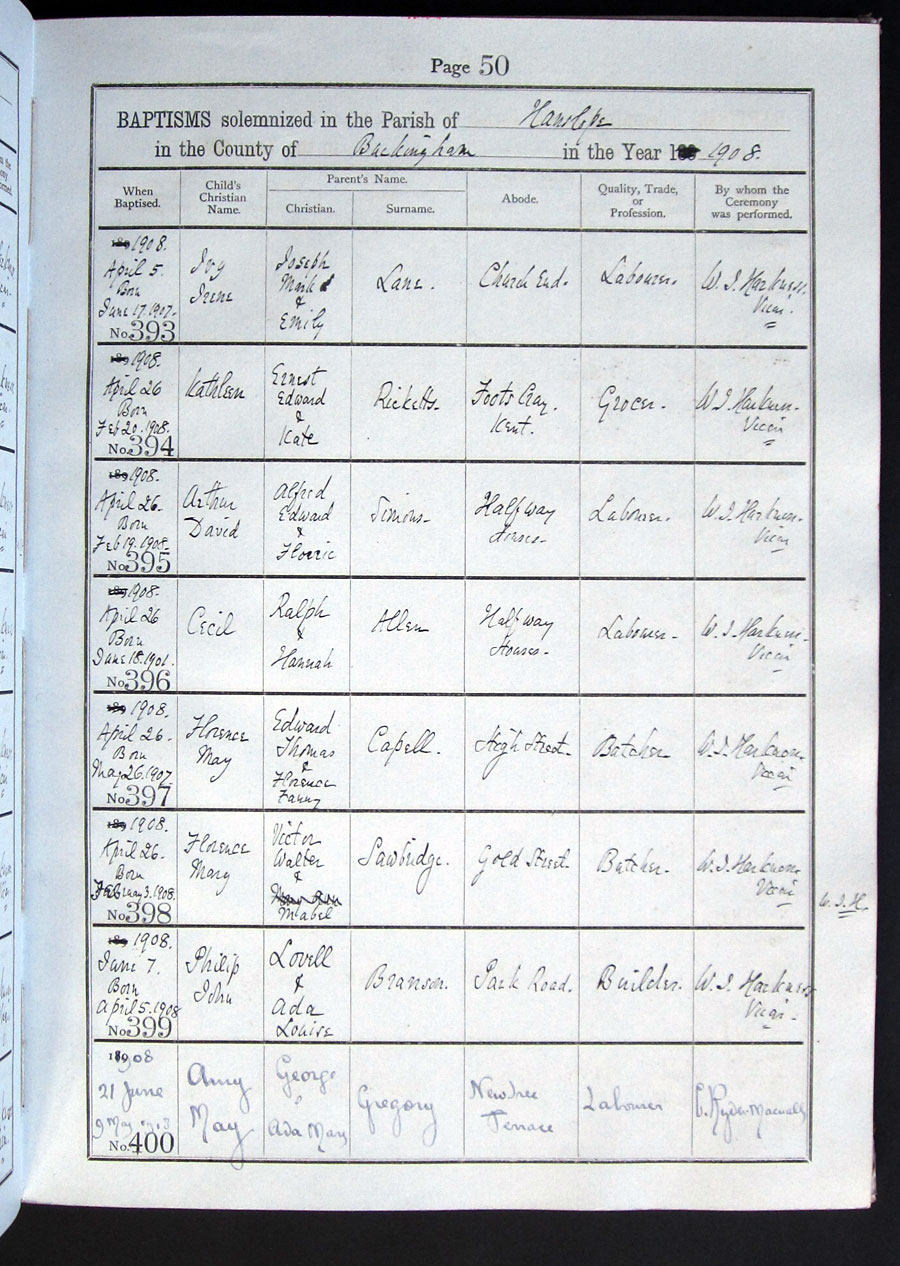 Page 50
BAPTISMS solemnized in the Parish of Hanslope
in the County of Buckingham in the Year 1908.
When Baptised.
Child's Christian Name.
Parent's Name.
Christian.
Surname.
Abode.
Quality, Trade, or Profession.
By whom the Ceremony was performed.
1908.
April 5.
Born
June 17. 1907.
No. 393
Ivy
Irene
Joseph
Mark
&
Emily
Lane.
Church End.
Labourer.
W. J. Harkness.
Vicar.
1908.
April 26
Born
Feb 20. 1908.
No. 394
Kathleen
Ernest
Edward
&
Kate
Ricketts.
Foots Cray.
Kent.
Grocer.
W. J. Harkness.
Vicar
1908.
April 26.
Born
Feb 19. 1908.
No. 395
Arthur
David
Alfred
Edward
&
Florrie
Simons.
Half way
Houses.
Labourer.
W. J. Harkness.
Vicar
1908.
April 26
Born
June 18. 1901.
No. 396
Cecil
Ralph
&
Hannah
Allen
Half way
Houses.
Labourer.
W. J. Harkness.
Vicar
1908.
April 26.
Born
May 26. 1907
No. 397
Florence
May
Edward
Thomas
&
Florence
Fanny
Capell.
High Street.
Butcher
W. J. Harkness.
Vicar
1908.
April 26.
Born
February 3. 1908.
No. 398
Florence
Mary
Victor
Walter
&
Mabel
Sawbridge.
Gold Street.
Butcher.
W. J. Harkness
Vicar
W. J. H.
1908.
June 7.
Born
April 5. 1908
No. 399
Philip
John
Lovell
&
Ada
Louise
Branson.
Park Road.
Builder.
W. J. Harkness
Vicar.
1908
21 June
9 May
No. 400
Amy
May
George
&
Ada Mary
Gregory
Newtree
Terrace
Labourer